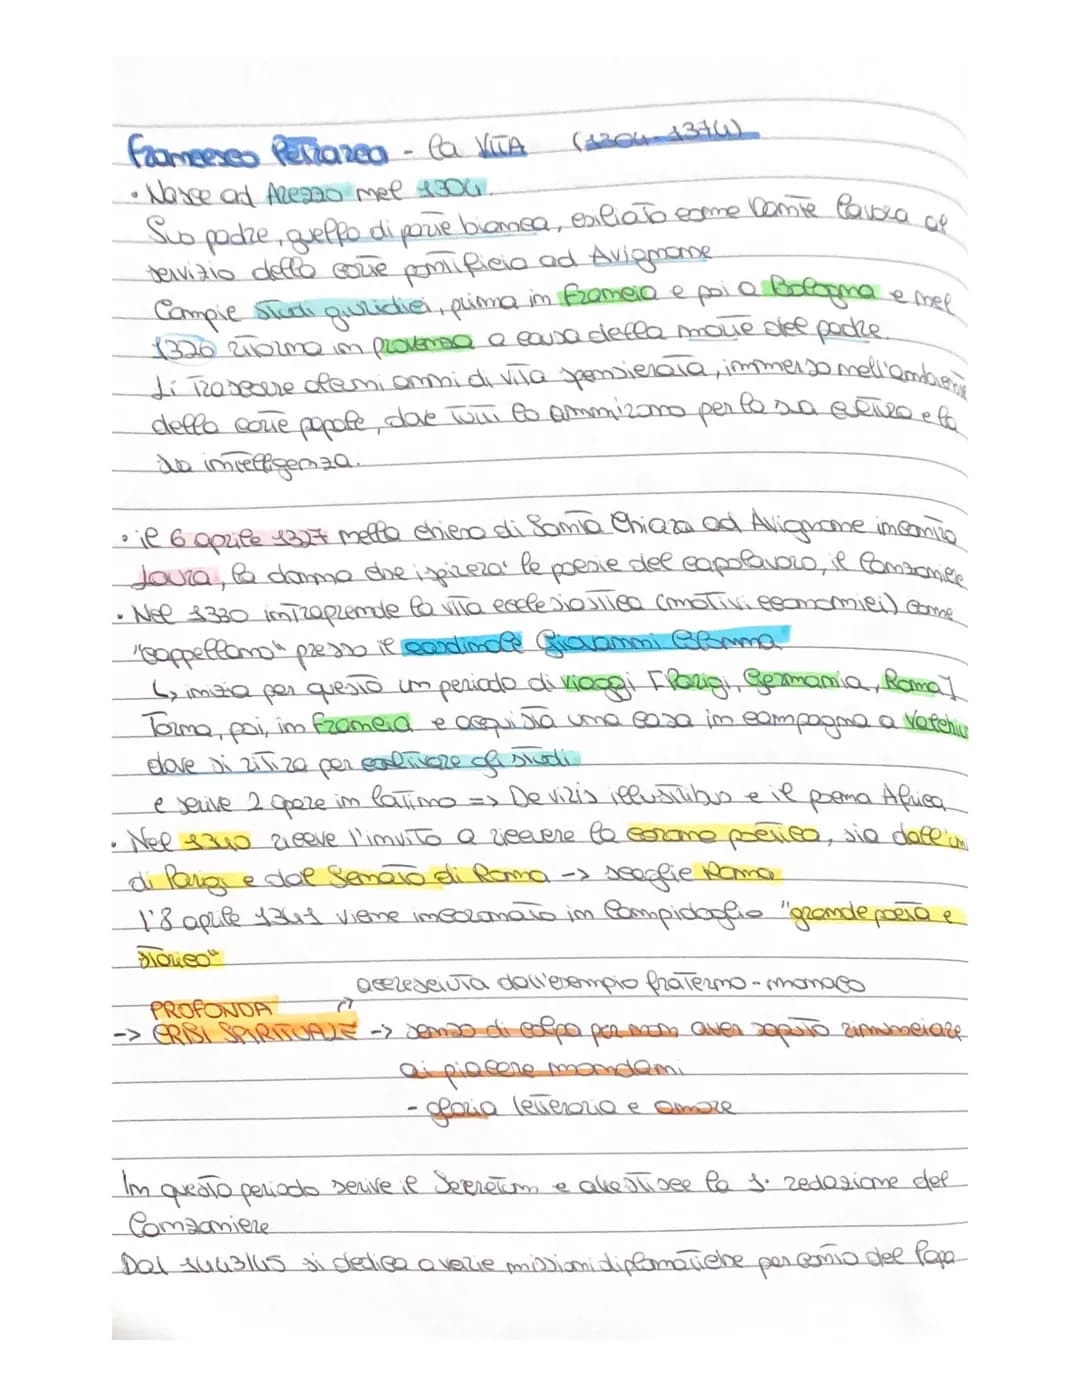 Francesco Petrarca - la VITA (1304-1374)
• Nasce ad Arezzo nel 1304.
Suo padre, guelfo di parte bianca, esiliato come Dante lavora al
servizio della corte pontificia ad Avignone
Compie studi giuridici, prima in Francia e poi a Bologna e nel
1326 ritorna in provenza a causa della morte del padre.
Li trascorre alcuni anni di vita spensierata, immerso nell'ambiente
della corte papale, dove tutti lo ammirano per la sua cultura e la
sua intelligenza.
• il 6 aprile 1327 nella chiesa di Santa Chiara ad Avignone incontra
Laura, la donna che ispirera' le poesie del capolavoro, il Canzoniere
• Nel 1330 intraprende la vita ecclesiastica (motivi economici) come
"cappellano" presso il cardinale Giovanni Colonna
↳ inizia per questo un periodo di viaggi [Parigi, Germania, Roma]
Torna, poi, in Francia e acquista una casa in campagna a Valchiu
dove si ritira per coltivare gli studi
e scrive 2 opere in latino => De viris illustribus e il poema Africa
• Nel 1340 riceve l'invito a ricevere la corona poetica, sia dall'un
di Parigi e dal Senato di Roma -> sceglie Roma
l'8 aprile 1341 viene incoronato in Campidoglio "grande poeta e
storico"
accresciuta dall'esempio fraterno - monaco
PROFONDA
-> CRISI SPIRITUALE -> senso di colpa per non aver saputo rinunciare
ai piacere mondani
- gloria letteraria e amore
In questo periodo scrive il Secretum e allestisce la 1. redazione del
Canzoniere
Dal 1443/45 si dedica a varie missioni diplomatiche per conto del Papa